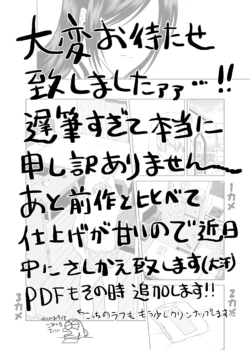 大変お待たせ
致しましたァァ…!!
遅筆すぎて本当に
申し訳ありません〜
あと前作と比べて
仕上げが甘いので近日
中にさしかえ致します(大汗)
PDFもその時 追加します!!
←こっちのラフも もう少しクリンナップします
1カメ
2カメ
3カメ